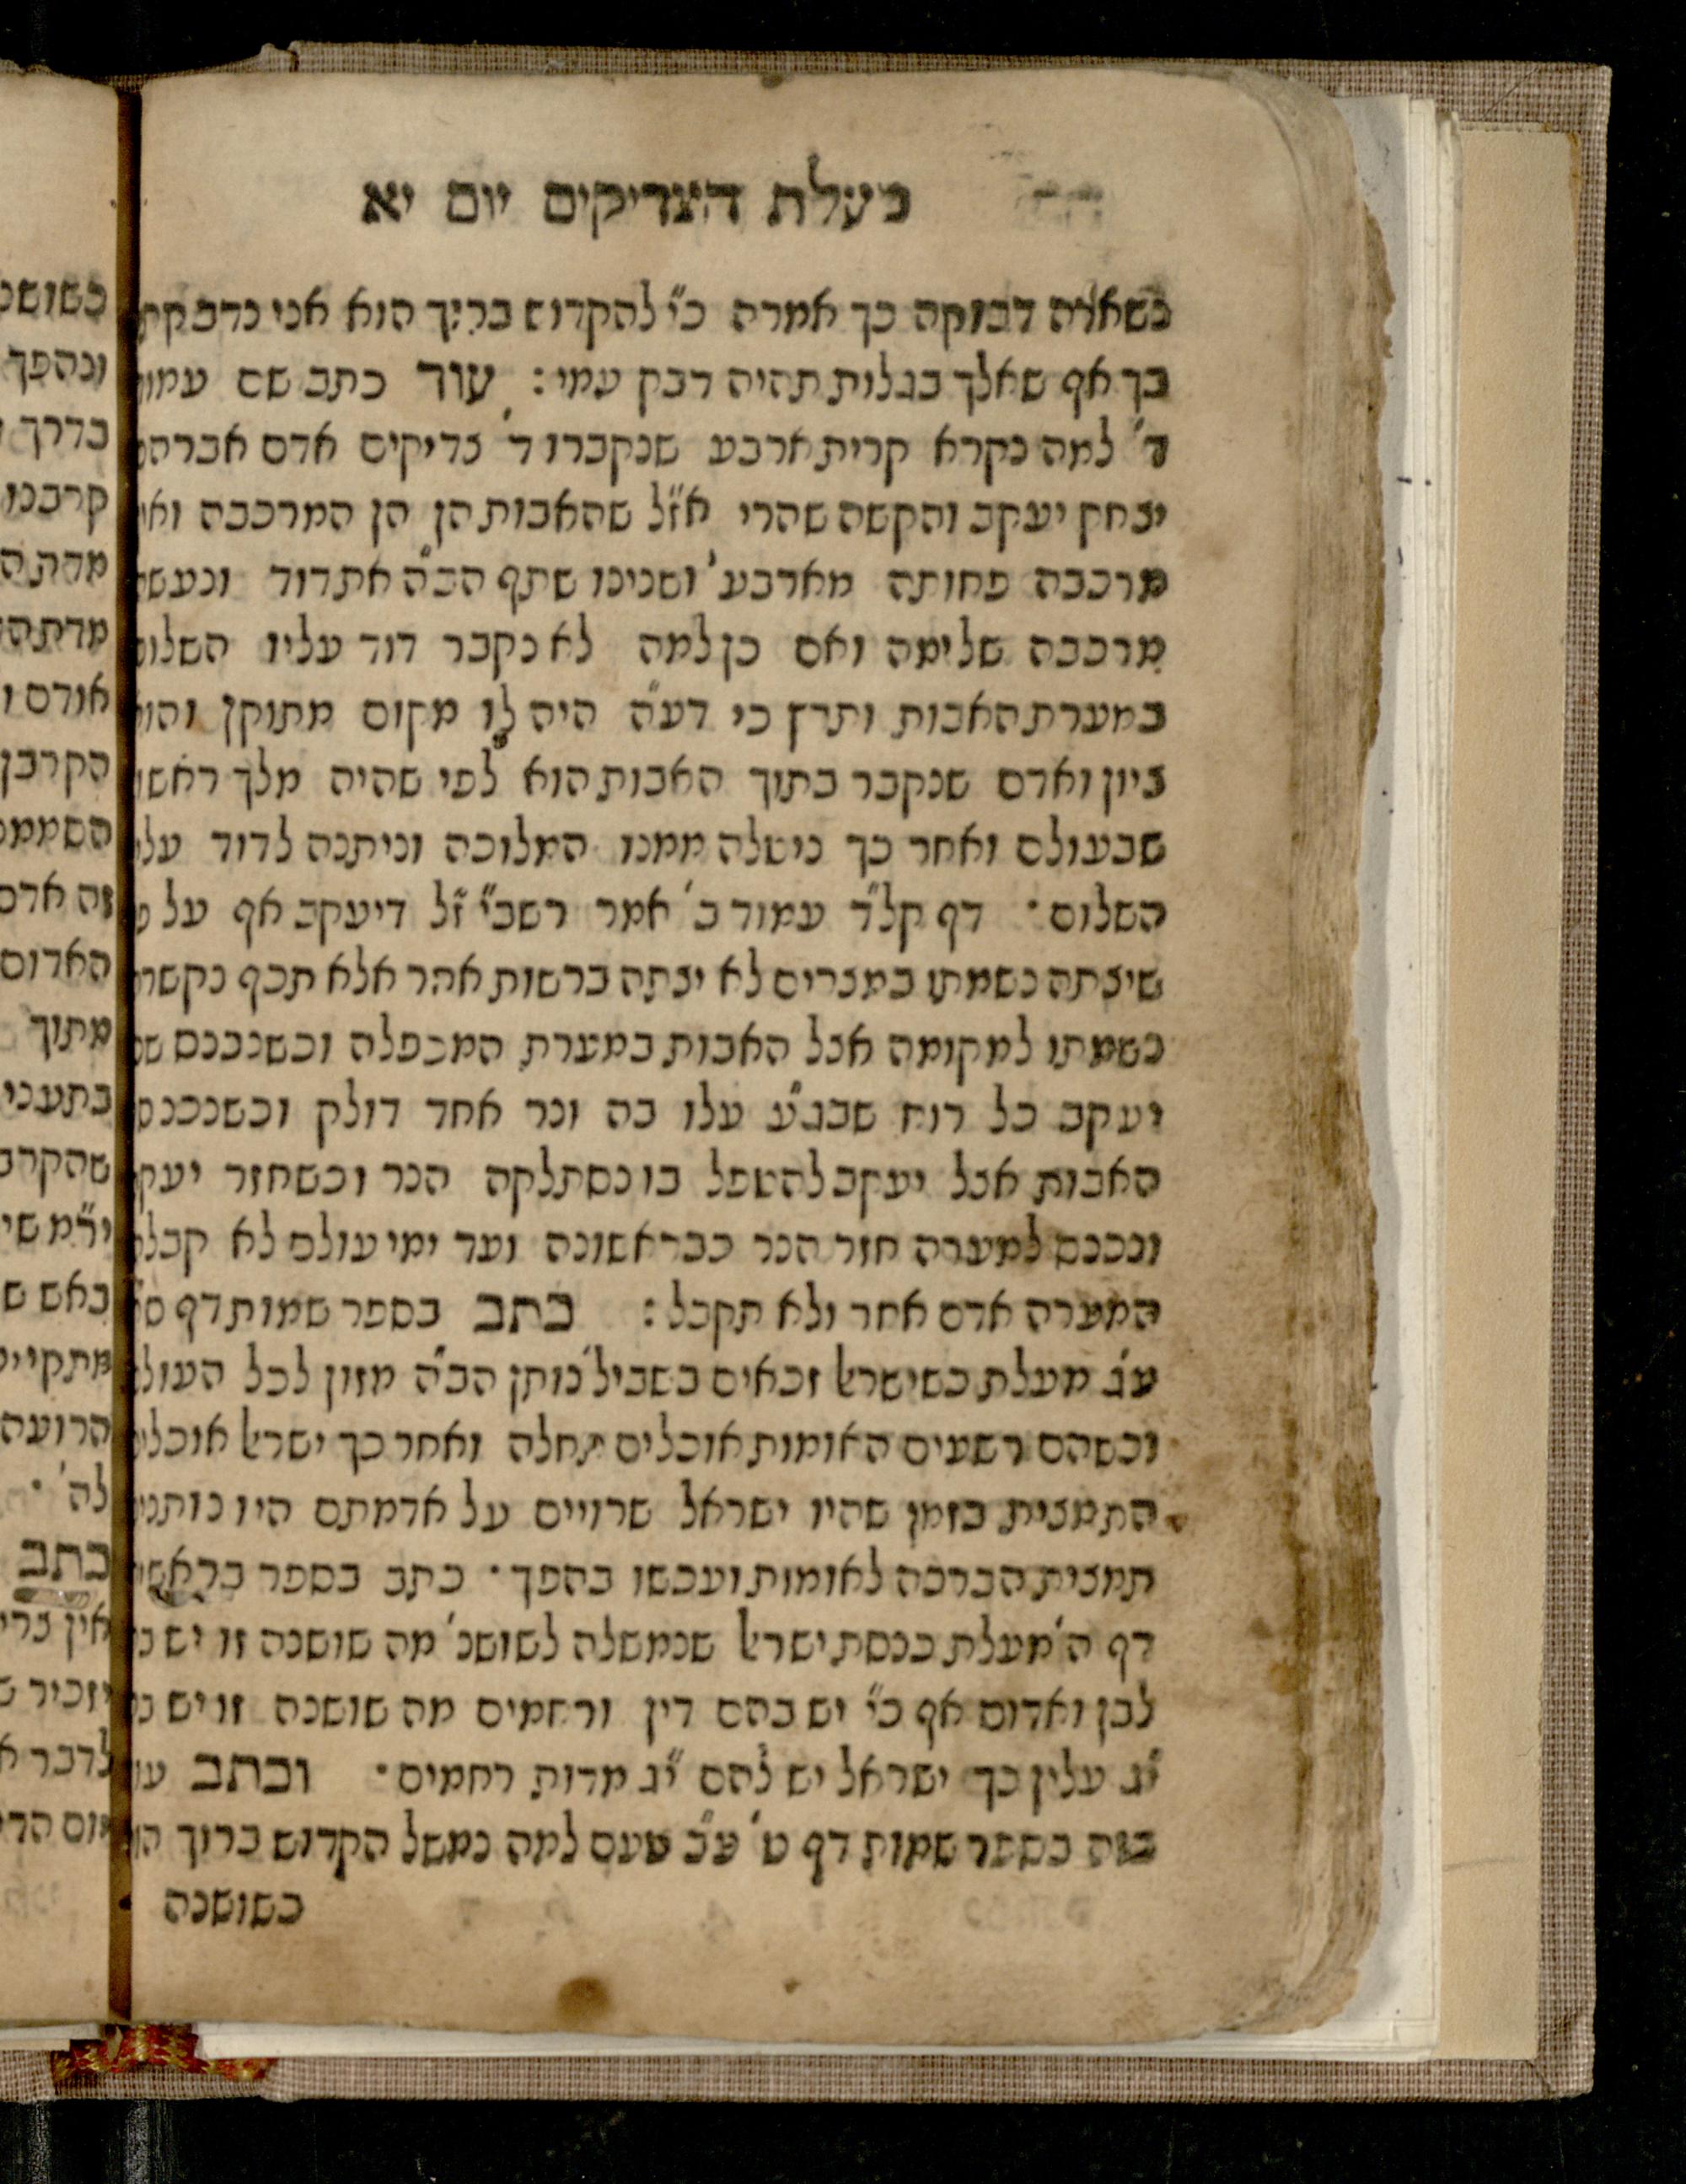 מעלת הצדיקים יום יא
כשארה דבוקה כך אמרה כ״י להקדוש ברוך הוא אני נדבקת
בך אף שאלך בגלות תהיה דבק עמי: עוד כתב שם עמוד
ד׳ למה נקרא קרית ארבע שנקברו ד׳ צדיקים אדם אברהם
יצחק יעקב והקשה שהרי אז״ל שהאבות הן הן המרכבה ואין
מרכבה פחותה מארבע׳ ושנינו שתף הב״ה את דוד ונעשה
מרכבה שלימה ואם כן למה לא נקבר דוד עליו השלום
במערת האבות ותרץ כי דע״ה היה לו מקום מתוקן והוא
ציון ואדם שנקבר בתוך האבות הוא לפי שהיה מלך ראשון
שבעולם ואחר כך ניטלה ממנו המלוכה וניתנה לדוד עליו
השלום · דף קל״ד עמוד ב׳ אמר רשב״י ז״ל דיעקב אף על
שיצתה נשמתו במצרים לא יצתה ברשות אחר אלא תכף נקשרה
נשמתו למקומה אצל האבות במערת המכפלה וכשנכנס שם
יעקב כל רוח שבג״ע עלו בה ונר אחד דולק וכשנכנס
האבות אצל יעקב להטפל בו נסתלקה הנר וכשחזר יעקב
ונכנס למערה חזר הנר כבראשונה ועד ימי עולם לא קבלה
המערה אדם אחר ולא תקבל: כתב בספר שמות דף
ע״ג מעלת כשישראל זכאים בשביל׳ נותן הב״ה מזון לכל העולם
וכשהם רשעים האומות אוכלים תחלה ואחר כך ישראל אוכלים
התמצית בזמן שהיו ישראל שרויים על אדמתם היו נותנים
תמצית הברכה לאומות ועכשו בהפך · כתב בספר בראשית
דף ה׳ מעלת כנסת ישראל שנמשלה לשושנ׳ מה שושנה זו יש
לבן ואדום אף כ״י יש בהם דין ורחמים מה שושנה זו יש
י״ג עלין כך ישראל יש להם י״ג מדות רחמים · וכתב עוד
בזה בספר שמות דף ט׳ ע״ב טעם למה נמשל הקדוש ברוך הוא
כשושנה